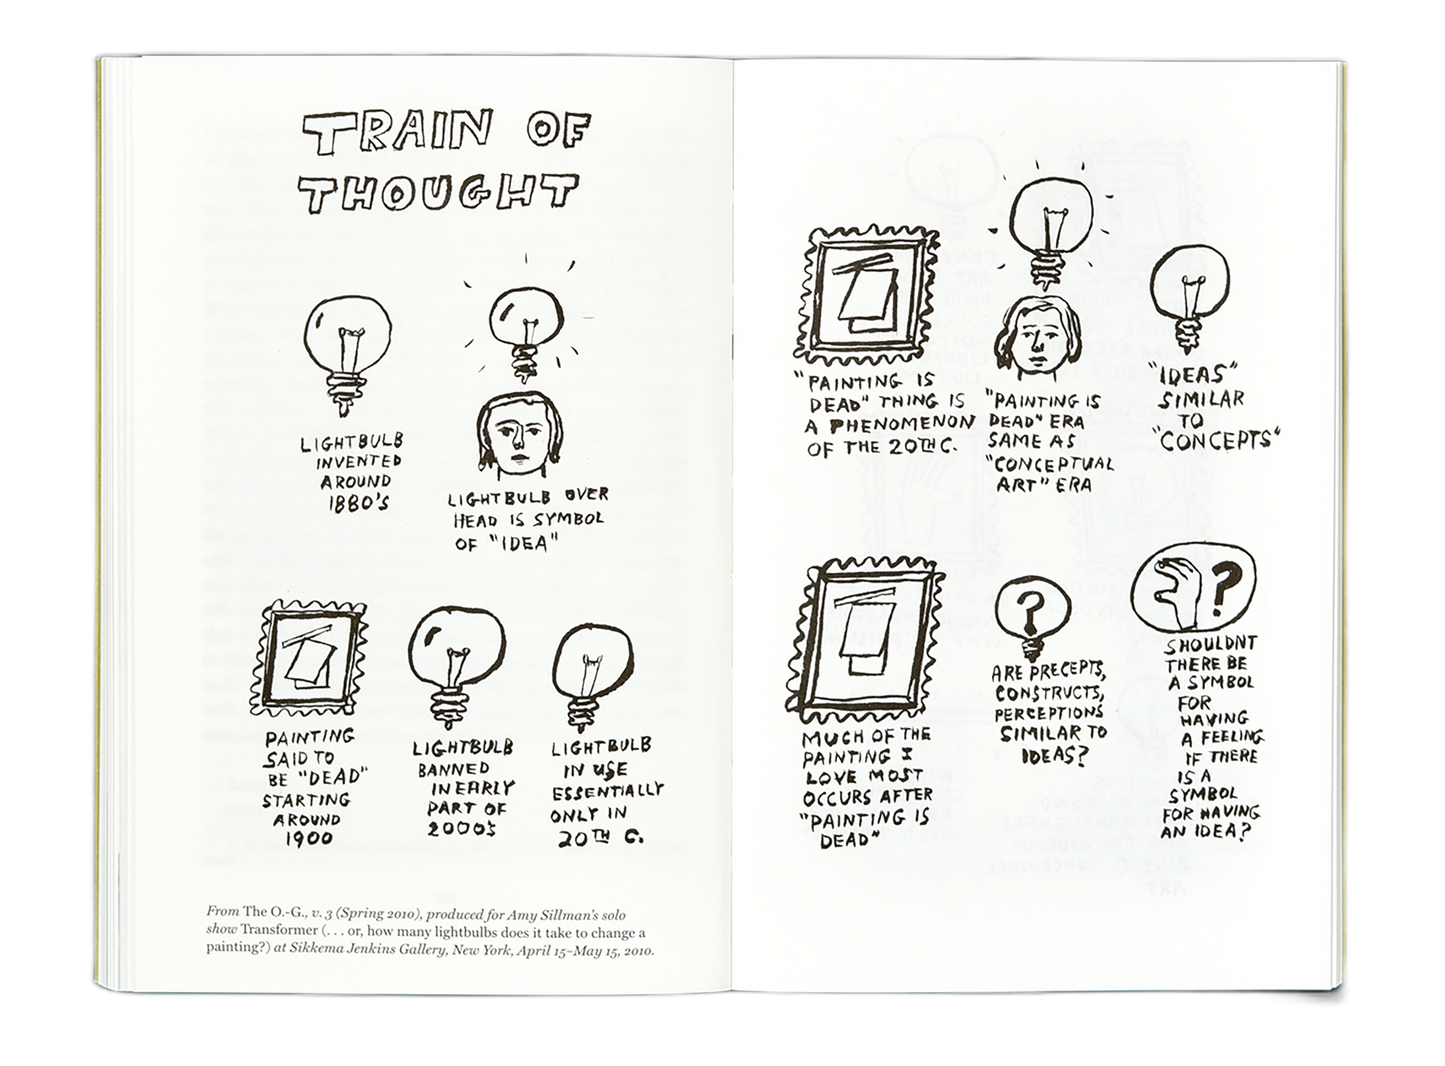 TRAIN OF
THOUGHT
LIGHTBULB
INVENTED
AROUND
1880'S
LIGHTBULB OVER
HEAD IS SYMBOL
OF "IDEA"
PAINTING
SAID TO
BE "DEAD"
STARTING
AROUND
1900
LIGHTBULB
BANNED
IN EARLY
PART OF
2000'S
LIGHTBULB
IN USE
ESSENTIALLY
ONLY IN
20TH C.
From The O.-G., v. 3 (Spring 2010), produced for Amy Sillman's solo
show Transformer (. . . or, how many lightbulbs does it take to change a
painting?) at Sikkema Jenkins Gallery, New York, April 15–May 15, 2010.
"PAINTING IS
DEAD" THING IS
A PHENOMENON
OF THE 20TH C.
"PAINTING IS
DEAD" ERA
SAME AS
"CONCEPTUAL
ART" ERA
"IDEAS"
SIMILAR
TO
"CONCEPTS"
MUCH OF THE
PAINTING I
LOVE MOST
OCCURS AFTER
"PAINTING IS
DEAD"
?
ARE PRECEPTS,
CONSTRUCTS,
PERCEPTIONS
SIMILAR TO
IDEAS?
?
SHOULDNT
THERE BE
A SYMBOL
FOR
HAVING
A FEELING
IF THERE
IS A
SYMBOL
FOR HAVING
AN IDEA?